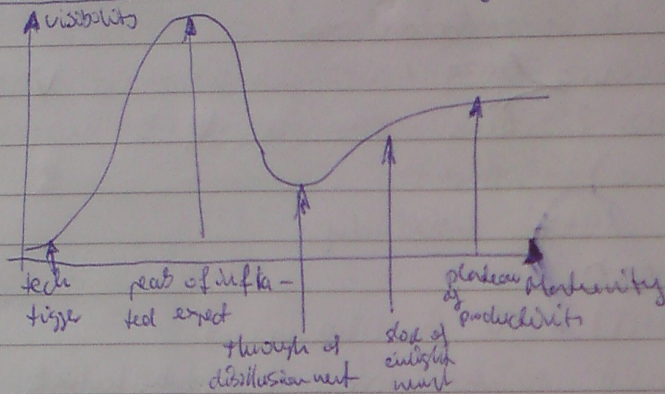 visibility
tech
tigger
peak of infla-
ted expect
through of
disillusionment
slop of
enlight
ment
plateau
of
productivity
Maturity